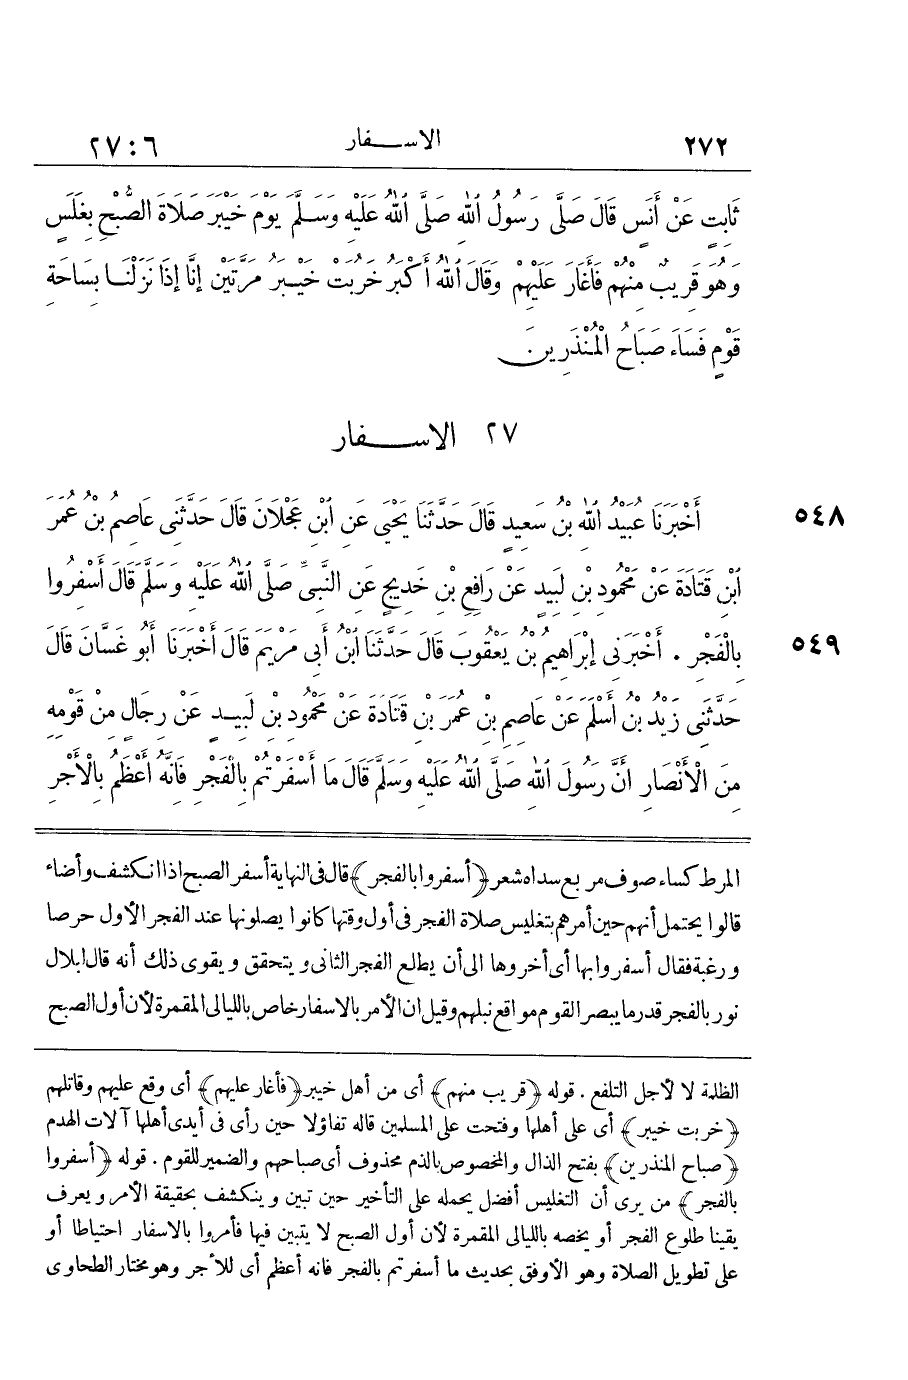 ٢٧٢ الاسـفار ٢٧:٦
ثَابِتٍ عَنْ أَنَسٍ قَالَ صَلَّى رَسُولُ اللّٰهِ صَلَّى اللّٰهُ عَلَيْهِ وَسَلَّمَ يَوْمَ خَيْبَرَ صَلَاةَ الصُّبْحِ بِغَلَسٍ
وَهُوَ قَرِيبٌ مِنْهُمْ فَأَغَارَ عَلَيْهِمْ وَقَالَ اللّٰهُ أَكْبَرُ خَرِبَتْ خَيْبَرُ مَرَّتَيْنِ إِنَّا إِذَا نَزَلْنَا بِسَاحَةِ
قَوْمٍ فَسَاءَ صَبَاحُ الْمُنْذَرِينَ
٢٧ الاسـفار
٥٤٨ أَخْبَرَنَا عُبَيْدُ اللّٰهِ بْنُ سَعِيدٍ قَالَ حَدَّثَنَا يَحْيَى عَنِ ابْنِ عَجْلَانَ قَالَ حَدَّثَنِى عَاصِمُ بْنُ عُمَرَ
ابْنِ قَتَادَةَ عَنْ مَحْمُودِ بْنِ لَبِيدٍ عَنْ رَافِعِ بْنِ خَدِيجٍ عَنِ النَّبِىِّ صَلَّى اللّٰهُ عَلَيْهِ وَسَلَّمَ قَالَ أَسْفِرُوا
٥٤٩ بِالْفَجْرِ . أَخْبَرَنِى إِبْرَاهِيمُ بْنُ يَعْقُوبَ قَالَ حَدَّثَنَا ابْنُ أَبِى مَرْيَمَ قَالَ أَخْبَرَنَا أَبُو غَسَّانَ قَالَ
حَدَّثَنِى زَيْدُ بْنُ أَسْلَمَ عَنْ عَاصِمِ بْنِ عُمَرَ بْنِ قَتَادَةَ عَنْ مَحْمُودِ بْنِ لَبِيدٍ عَنْ رِجَالٍ مِنْ قَوْمِهِ
مِنَ الْأَنْصَارِ أَنَّ رَسُولَ اللّٰهِ صَلَّى اللّٰهُ عَلَيْهِ وَسَلَّمَ قَالَ مَا أَسْفَرْتُمْ بِالْفَجْرِ فَانَّهُ أَعْظَمُ بِالْأَجْرِ
المرط كساء صوف مربع سداه شعر ﴿أسفروا بالفجر﴾ قال فى النهاية أسفر الصبح اذا انكشف وأضاء
قالوا يحتمل أنهم حين أمرهم بتغليس صلاة الفجر فى أول وقتها كانوا يصلونها عند الفجر الأول حرصا
ورغبة فقال أسفروا بها أى أخروها الى أن يطلع الفجر الثانى ويتحقق ويقوى ذلك أنه قال لبلال
نور بالفجر قدر ما يبصر القوم مواقع نبلهم وقيل ان الأمر بالاسفار خاص بالليالى المقمرة لأن أول الصبح
الظلمة لا لأجل التلفع . قوله ﴿قريب منهم﴾ أى من أهل خيبر ﴿فأغار عليهم﴾ أى وقع عليهم وقاتلهم
﴿خربت خيبر﴾ أى على أهلها وفتحت على المسلمين قاله تفاؤلا حين رأى فى أيدى أهلها آلات الهدم
﴿صباح المنذرين﴾ بفتح الذال والمخصوص بالذم محذوف أى صباحهم والضمير للقوم . قوله ﴿أسفروا
بالفجر﴾ من يرى أن التغليس أفضل يحمله على التأخير حين تبين وينكشف بحقيقة الأمر ويعرف
يقينا طلوع الفجر أو يخصه بالليالى المقمرة لأن أول الصبح لا يتبين فيها فأمروا بالاسفار احتياطا أو
على تطويل الصلاة وهو الأوفق بحديث ما أسفرتم بالفجر فانه أعظم أى للأجر وهو مختار الطحاوى